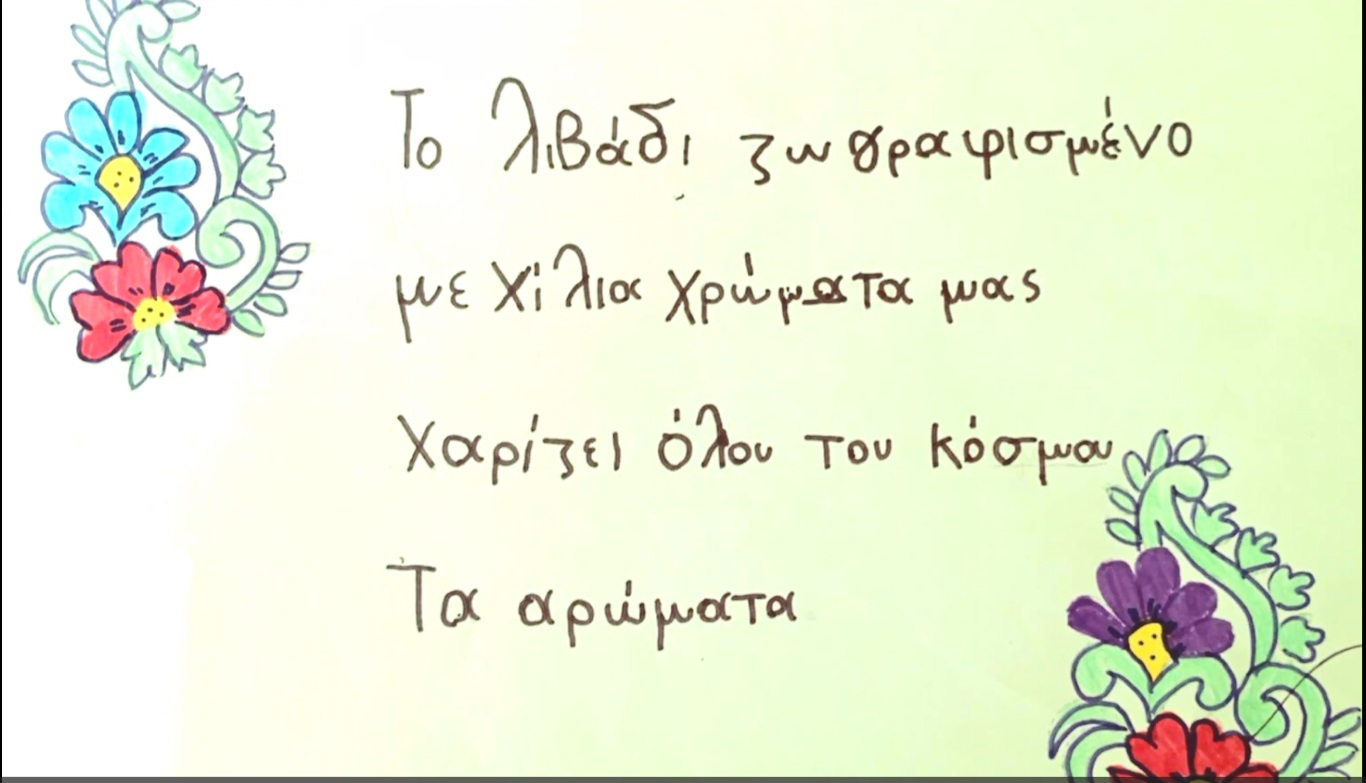 Το λιβάδι ζωγραφισμένο
με χίλια χρώματα μας
Χαρίζει όλου του κόσμου
Τα αρώματα